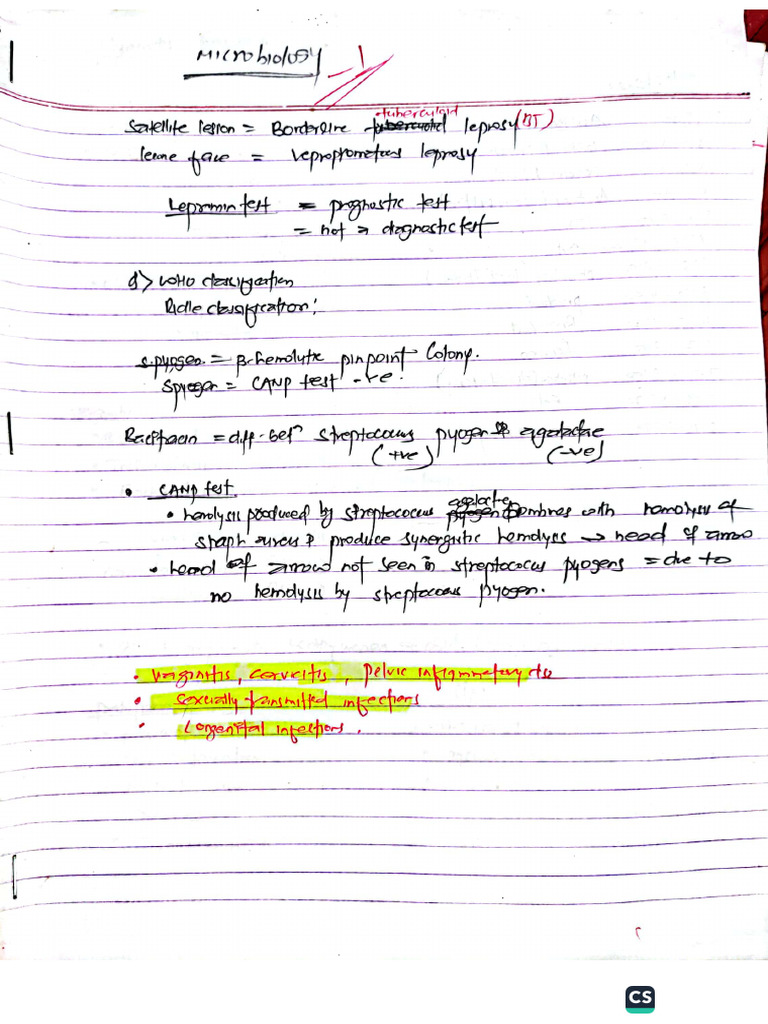 Microbiology - 1
Satellite lesion = Borderline tuberculoid leprosy (BT)
leonine face = Lepromatous leprosy
Lepromin test = prognostic test
= not → diagnostic test
Q> WHO classification
Ridle classification:
S.pyogen = β-hemolytic pinpoint Colony.
S pyogen = CAMP test -ve.
Bacitracin = diff. betn streptococcus pyogen & agalactae
(+ve) (-ve)
• CAMP test
• hemolysis produced by streptococcus agalactae combines with hemolysis of
staph aureus & produce synergistic hemolysis → head of arrow
• head of arrow not seen in streptococcus pyogens = due to
no hemolysis by streptococcus pyogen.
• Vaginitis, cervicitis, Pelvic inflammatory dse
• Sexually transmitted infections
• Congenital infections.
CS